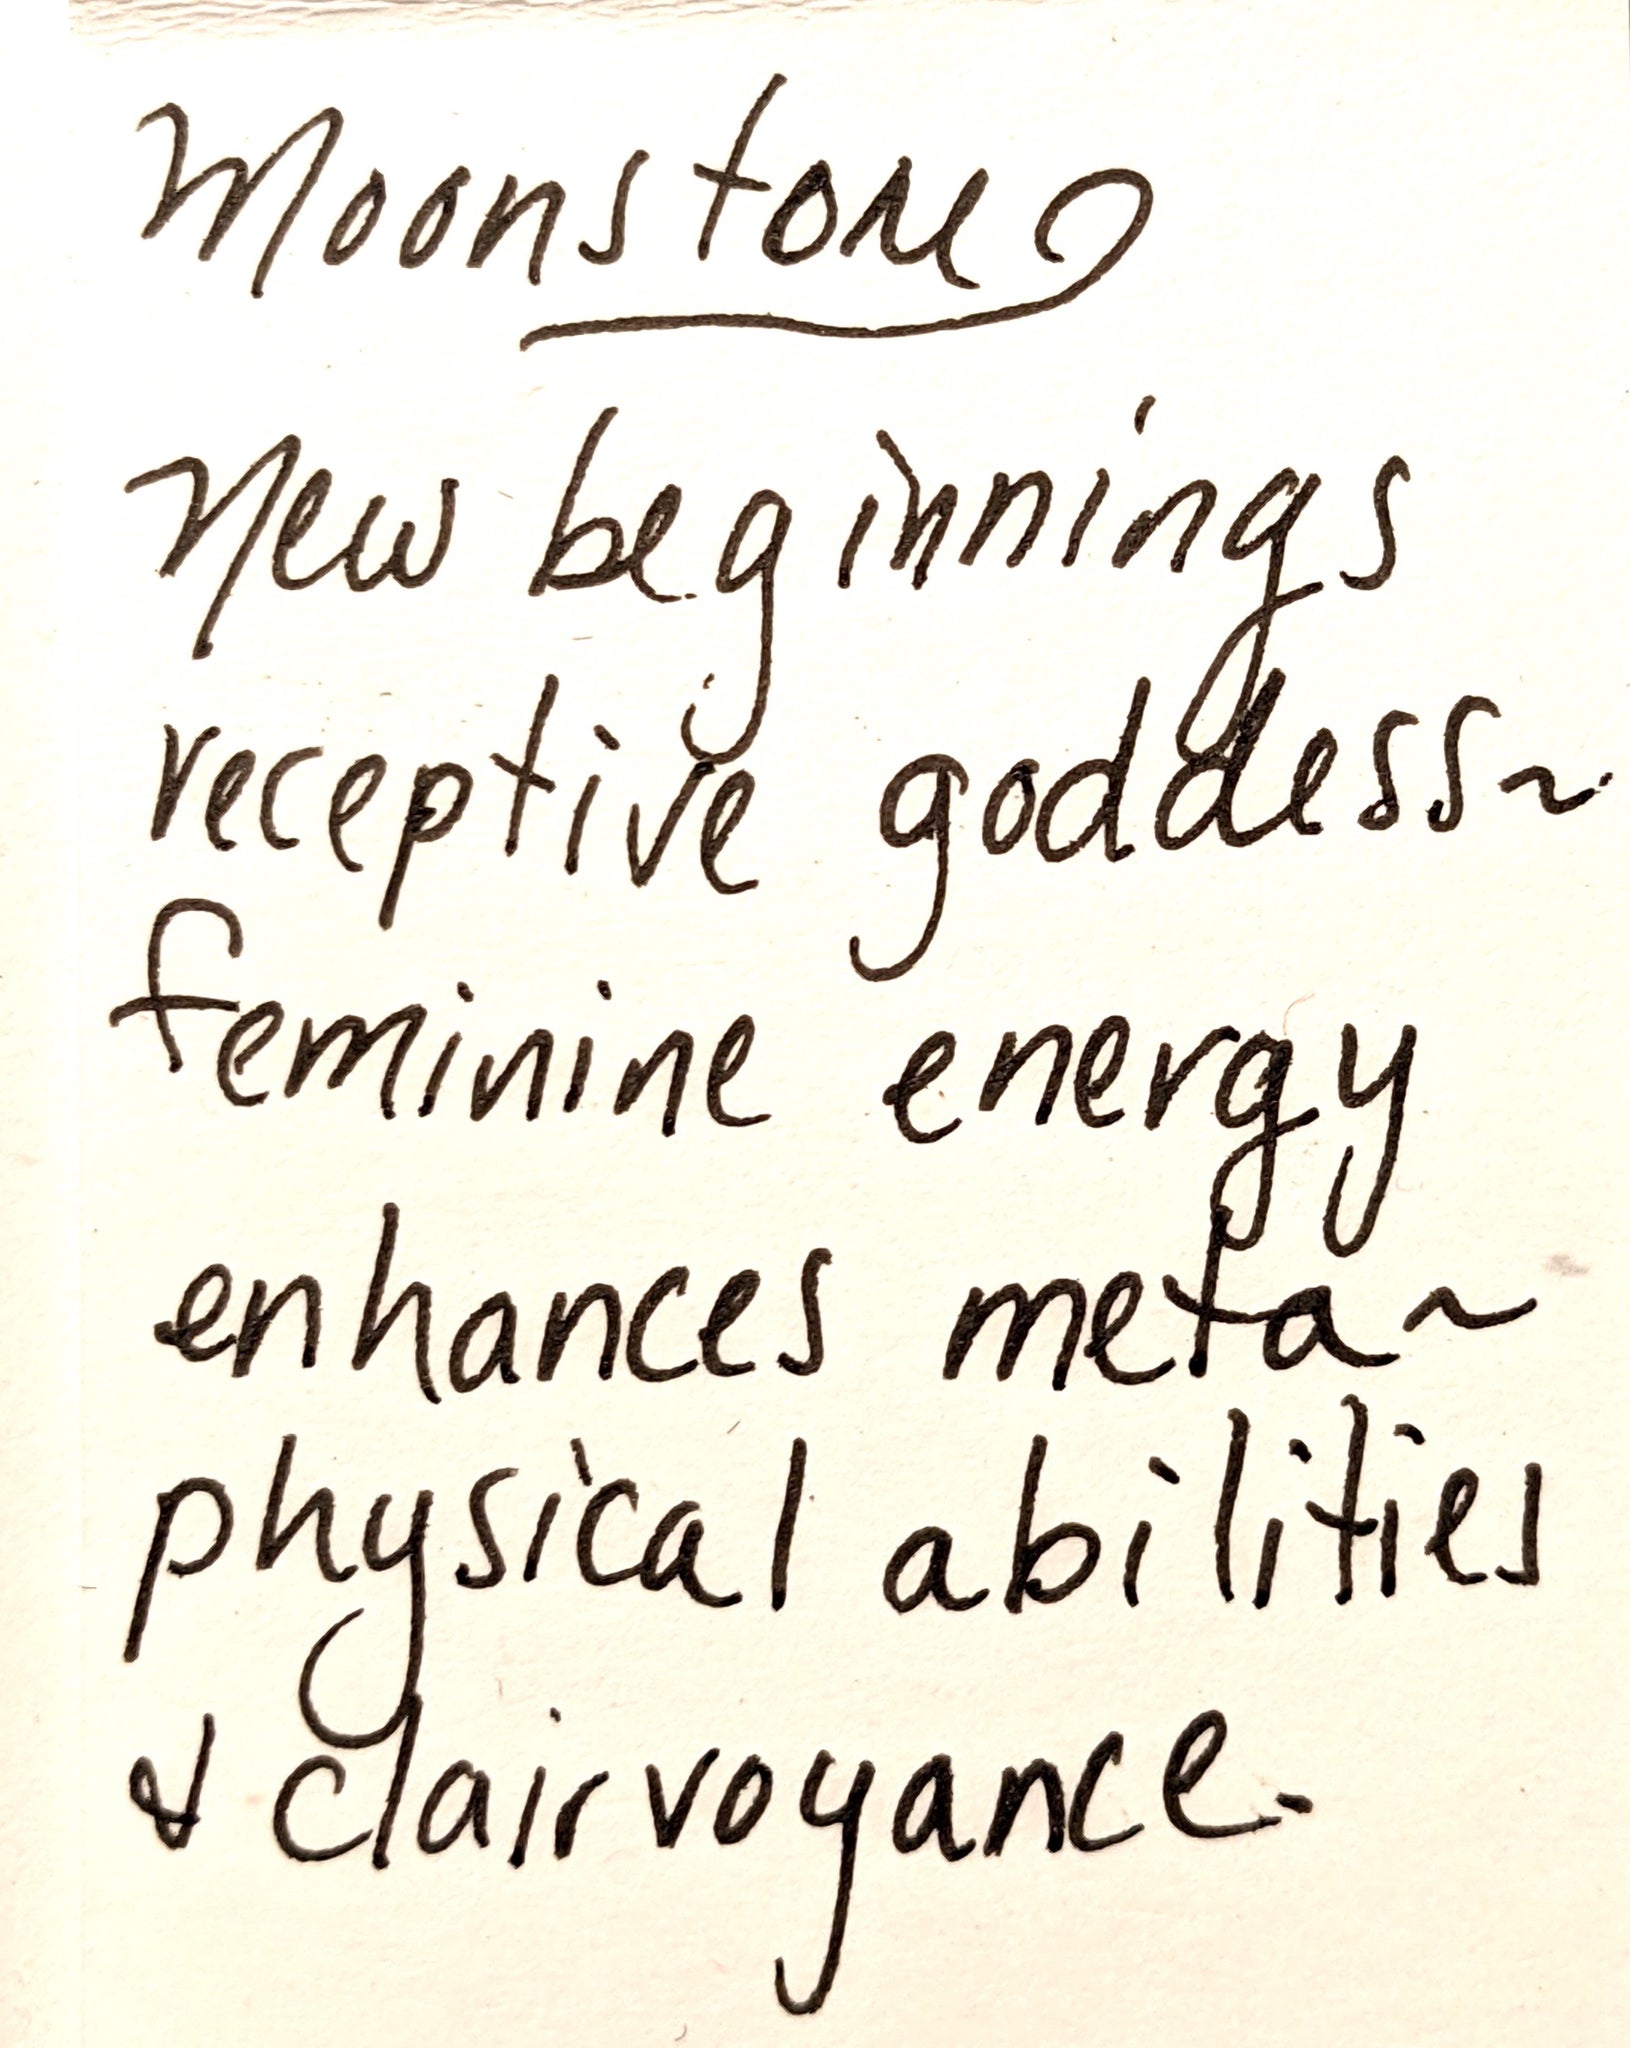 Moonstone
New beginnings
receptive goddess~
feminine energy
enhances meta~
physical abilities
& clairvoyance.